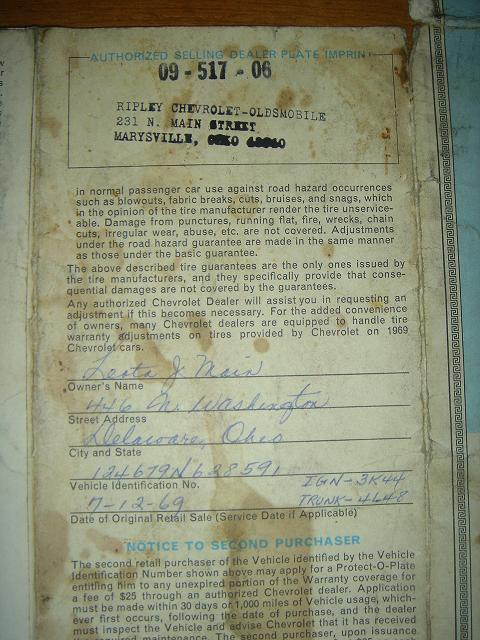 AUTHORIZED SELLING DEALER PLATE IMPRINT
09-517-06
RIPLEY CHEVROLET-OLDSMOBILE
231 N. MAIN STREET
MARYSVILLE, OHIO
in normal passenger car use against road hazard occurrences
such as blowouts, fabric breaks, cuts, bruises, and snags, which
in the opinion of the tire manufacturer render the tire unservice-
able. Damage from punctures, running flat, fire, wrecks, chain
cuts, irregular wear, abuse, etc. are not covered. Adjustments
under the road hazard guarantee are made in the same manner
as those under the basic guarantee.
The above described tire guarantees are the only ones issued by
the tire manufacturers, and they specifically provide that conse-
quential damages are not covered by the guarantees.
Any authorized Chevrolet Dealer will assist you in requesting an
adjustment if this becomes necessary. For the added convenience
of owners, many Chevrolet dealers are equipped to handle tire
warranty adjustments on tires provided by Chevrolet on 1969
Chevrolet cars.
Leota J Main
Owner's Name
446 N. Washington
Street Address
Delaware, Ohio
City and State
124679N628591 IGN-3K44
Vehicle Identification No.
7-12-69 TRUNK-4L48
Date of Original Retail Sale (Service Date if Applicable)
NOTICE TO SECOND PURCHASER
The second retail purchaser of the Vehicle identified by the Vehicle
Identification Number shown above may apply for a Protect-O-Plate
entitling him to any unexpired portion of the Warranty coverage for
a fee of $25 through an authorized Chevrolet dealer. Application
must be made within 30 days or 1,000 miles of Vehicle usage, which-
ever first occurs, following the date of purchase, and the dealer
must inspect the Vehicle and advise Chevrolet that it has received
required maintenance. The second purchaser, upon issuance